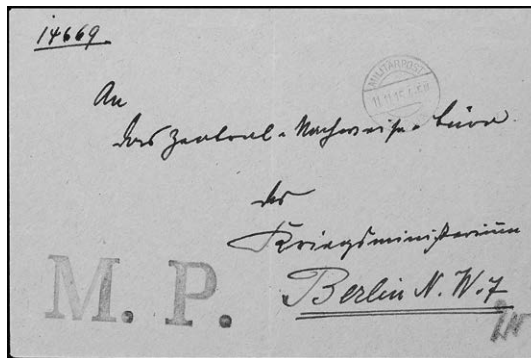 14669.
MILITÄRPOST
An
das Zentral-Nachweise-büro
des
Kriegsministerium
M. P.
Berlin N. W. 7